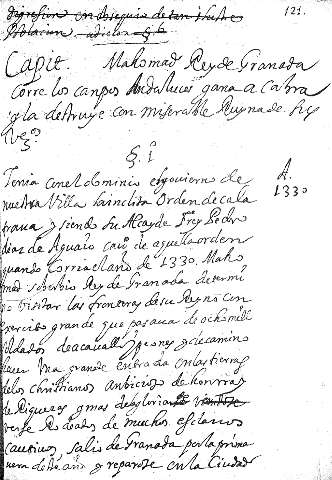 121.
digression en obsequio de tan ilustre
Poblacion
Capit Mahomad Rey de Granada
Corre los campos Andaluces gana a Cabra
y la destruye con miserable Ruyna de sus
Vec.os
§. 1
Tenia con el dominio el govierno de
nuestra Villa la inclita Orden de cala
trava y siendo su Alcayde Frey Pedro
diaz de Aguaio cav.o de aquella orden
quando corria el año de 1330. Maho
mad soberbio Rey de Granada determi
no visitar las fronteras de su Reyno con
exercito grande que pasava de ocho mill
soldados de a cavall y peones y encamino
hacer una grande entrada en las tierras
de los christianos anbicioso de honrras
de Riquezas y mas de la gloria de
verse Rodeado de muchos esclavos
cautivos salio de Granada por la prima
vera deste año y reparose en la Ciudad
A.
1330